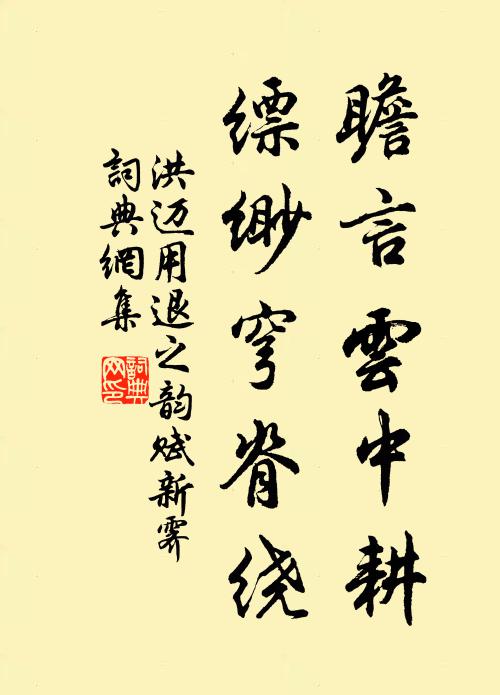 瞻言雲中耕
縹缈穹脊绕
洪迈用退之韵赋新霁
詞典網集
詞典网印